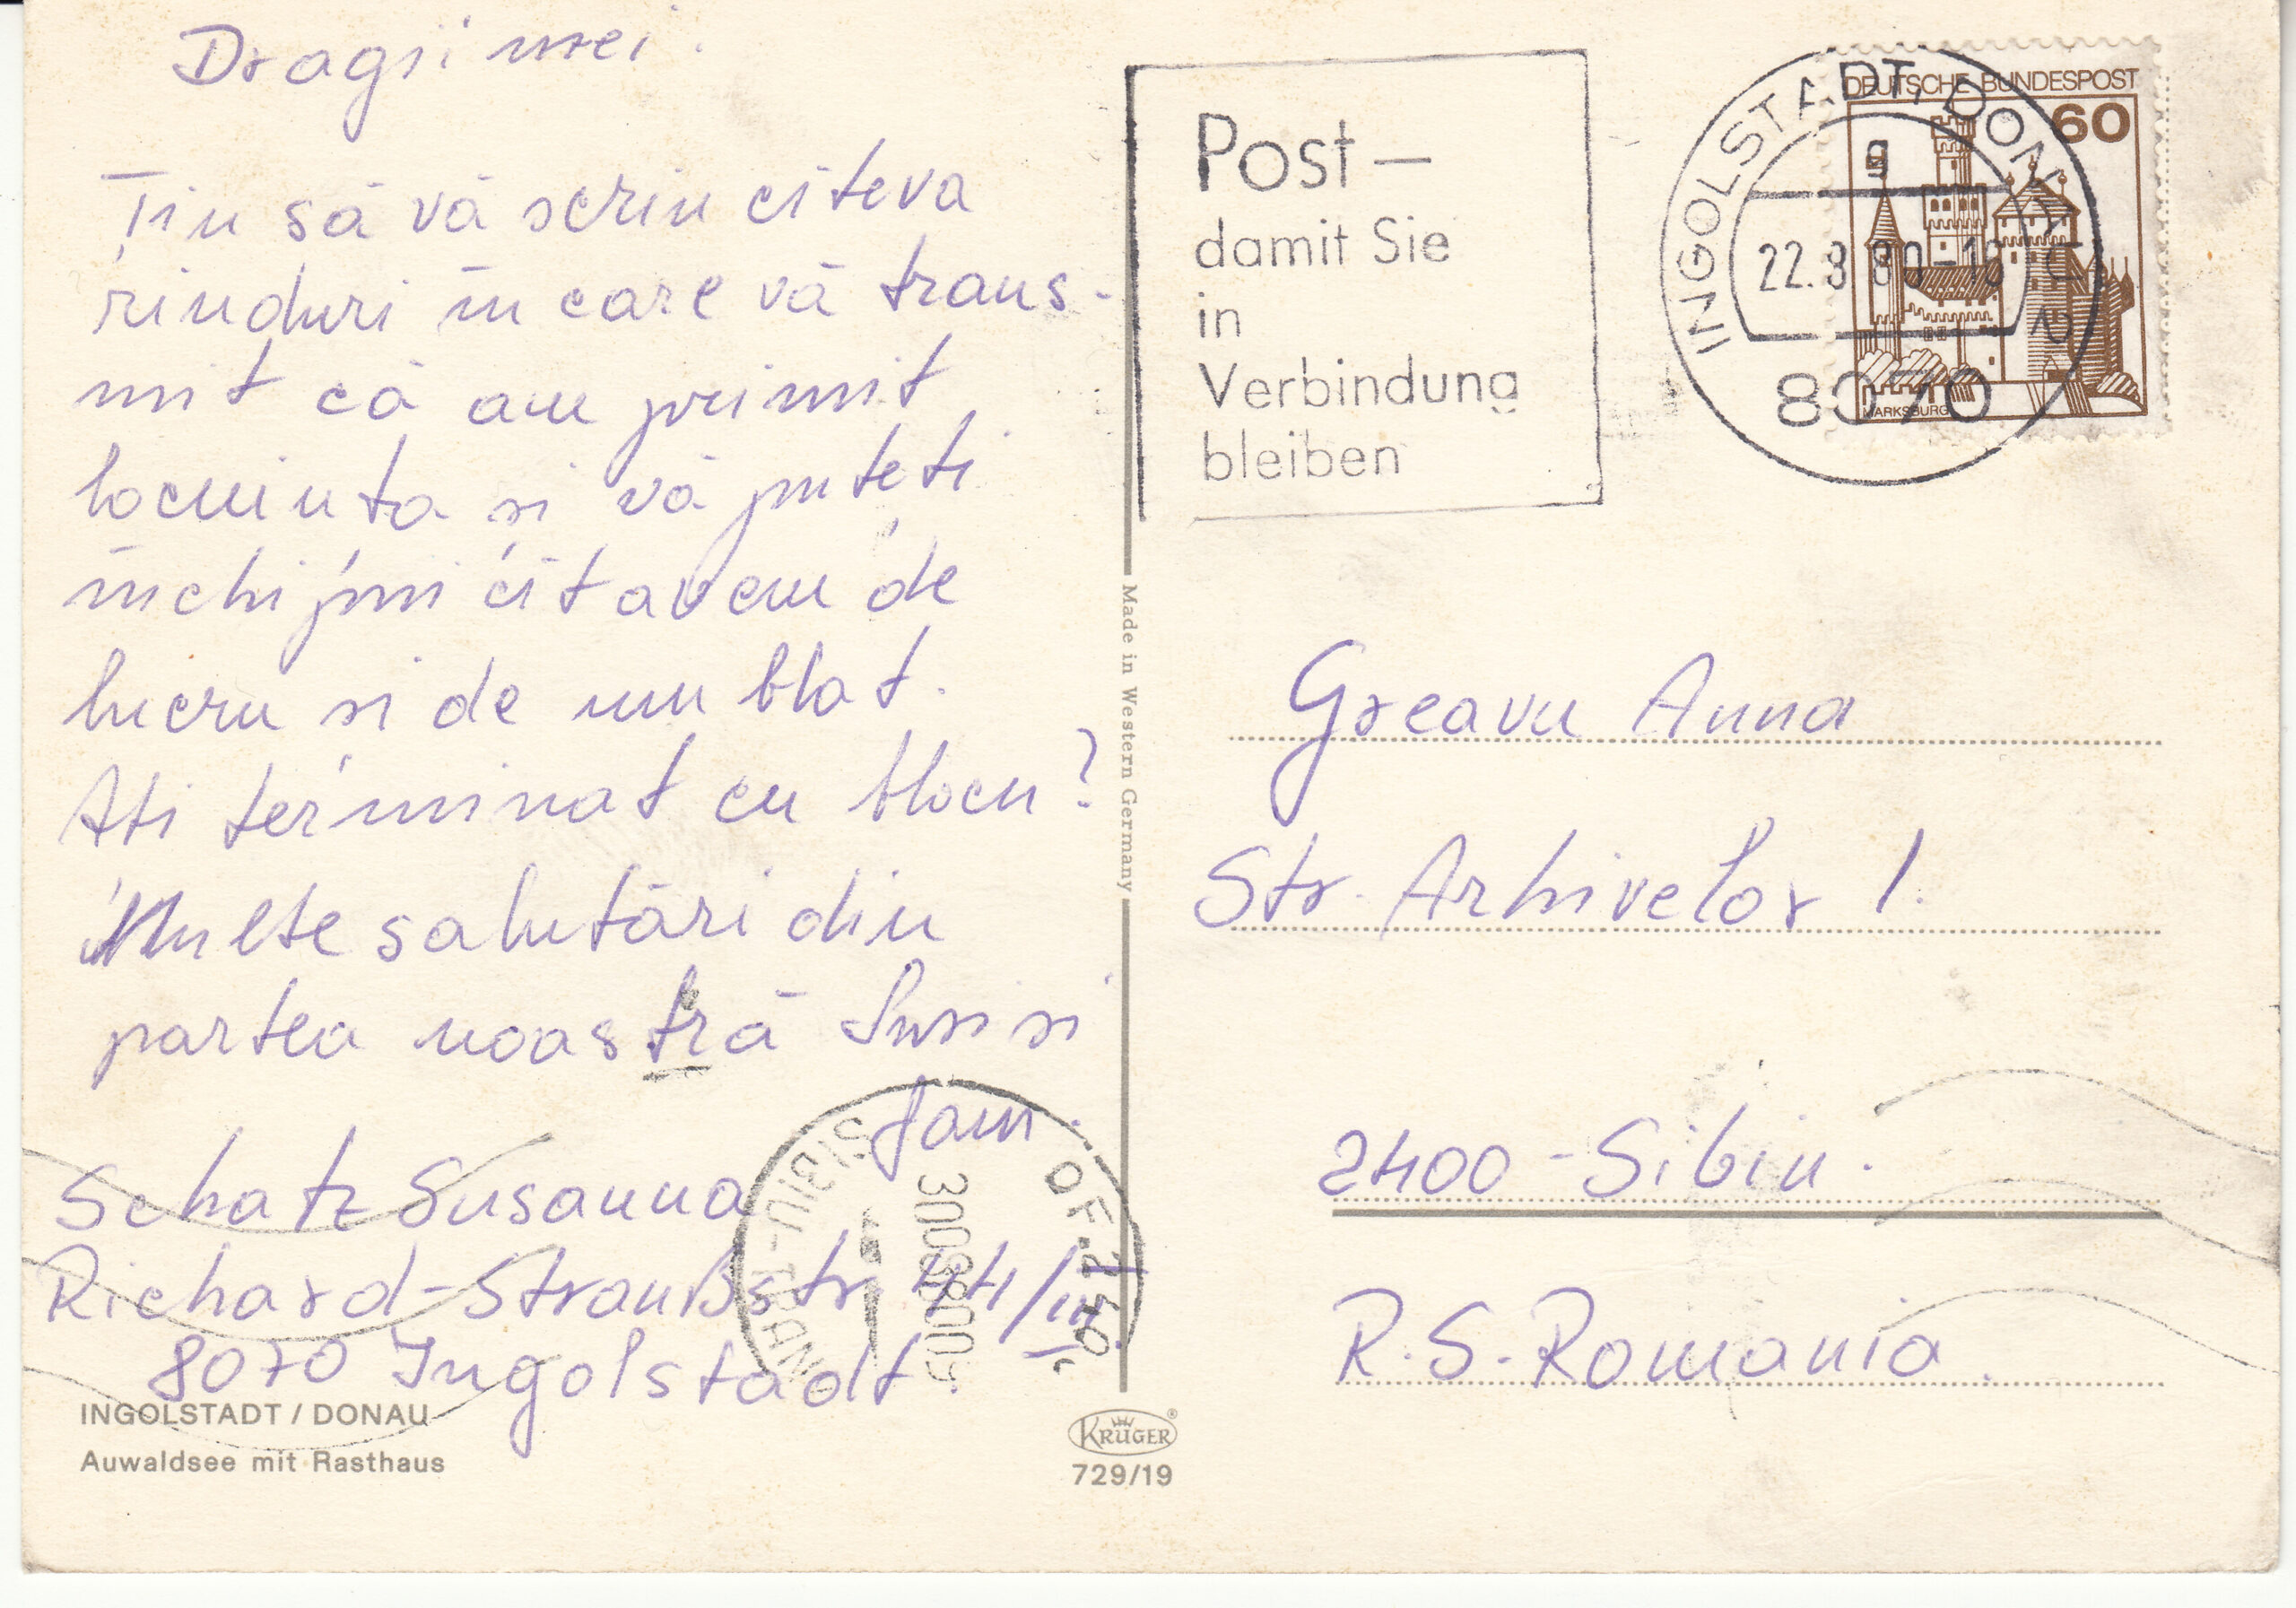 Dragii mei.
Țin să vă scriu cîteva
rînduri în care vă trans-
mit că am primit
locuința și vă puteți
închipui cît avem de
lucru și de umblat.
Ați terminat cu blocu?
Multe salutări din
partea noastră Susi si
fam.
Schatz Susanna
Richard-Straußstr. 44/III
8070 Ingolstadt
INGOLSTADT / DONAU
Auwaldsee mit Rasthaus
Made in Western Germany
KRÜGER
729/19
Post –
damit Sie
in
Verbindung
bleiben
INGOLSTADT, DONAU 2
g
22.8.80-18
8070
DEUTSCHE BUNDESPOST
60
MARKSBURG
Greavu Anna
Str. Arhivelor 1.
2400 - Sibiu.
R.S. Romania.
SIBIU-TRANZIT